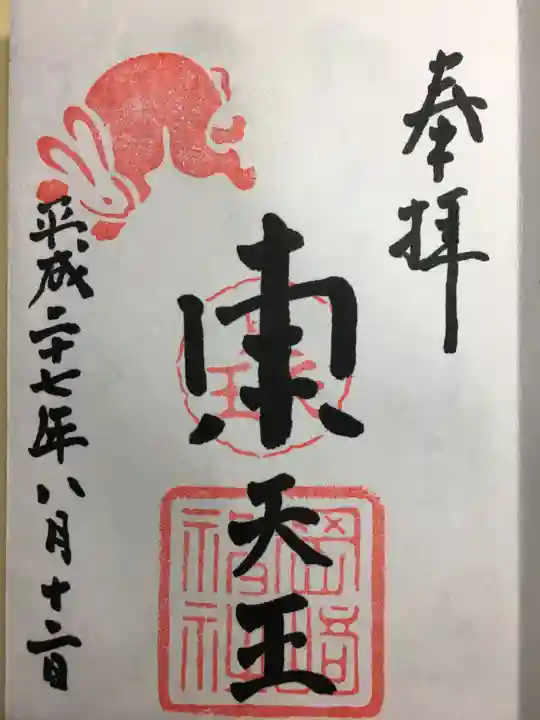 奉拝
東天王
岡崎神社
平成二十七年八月十二日